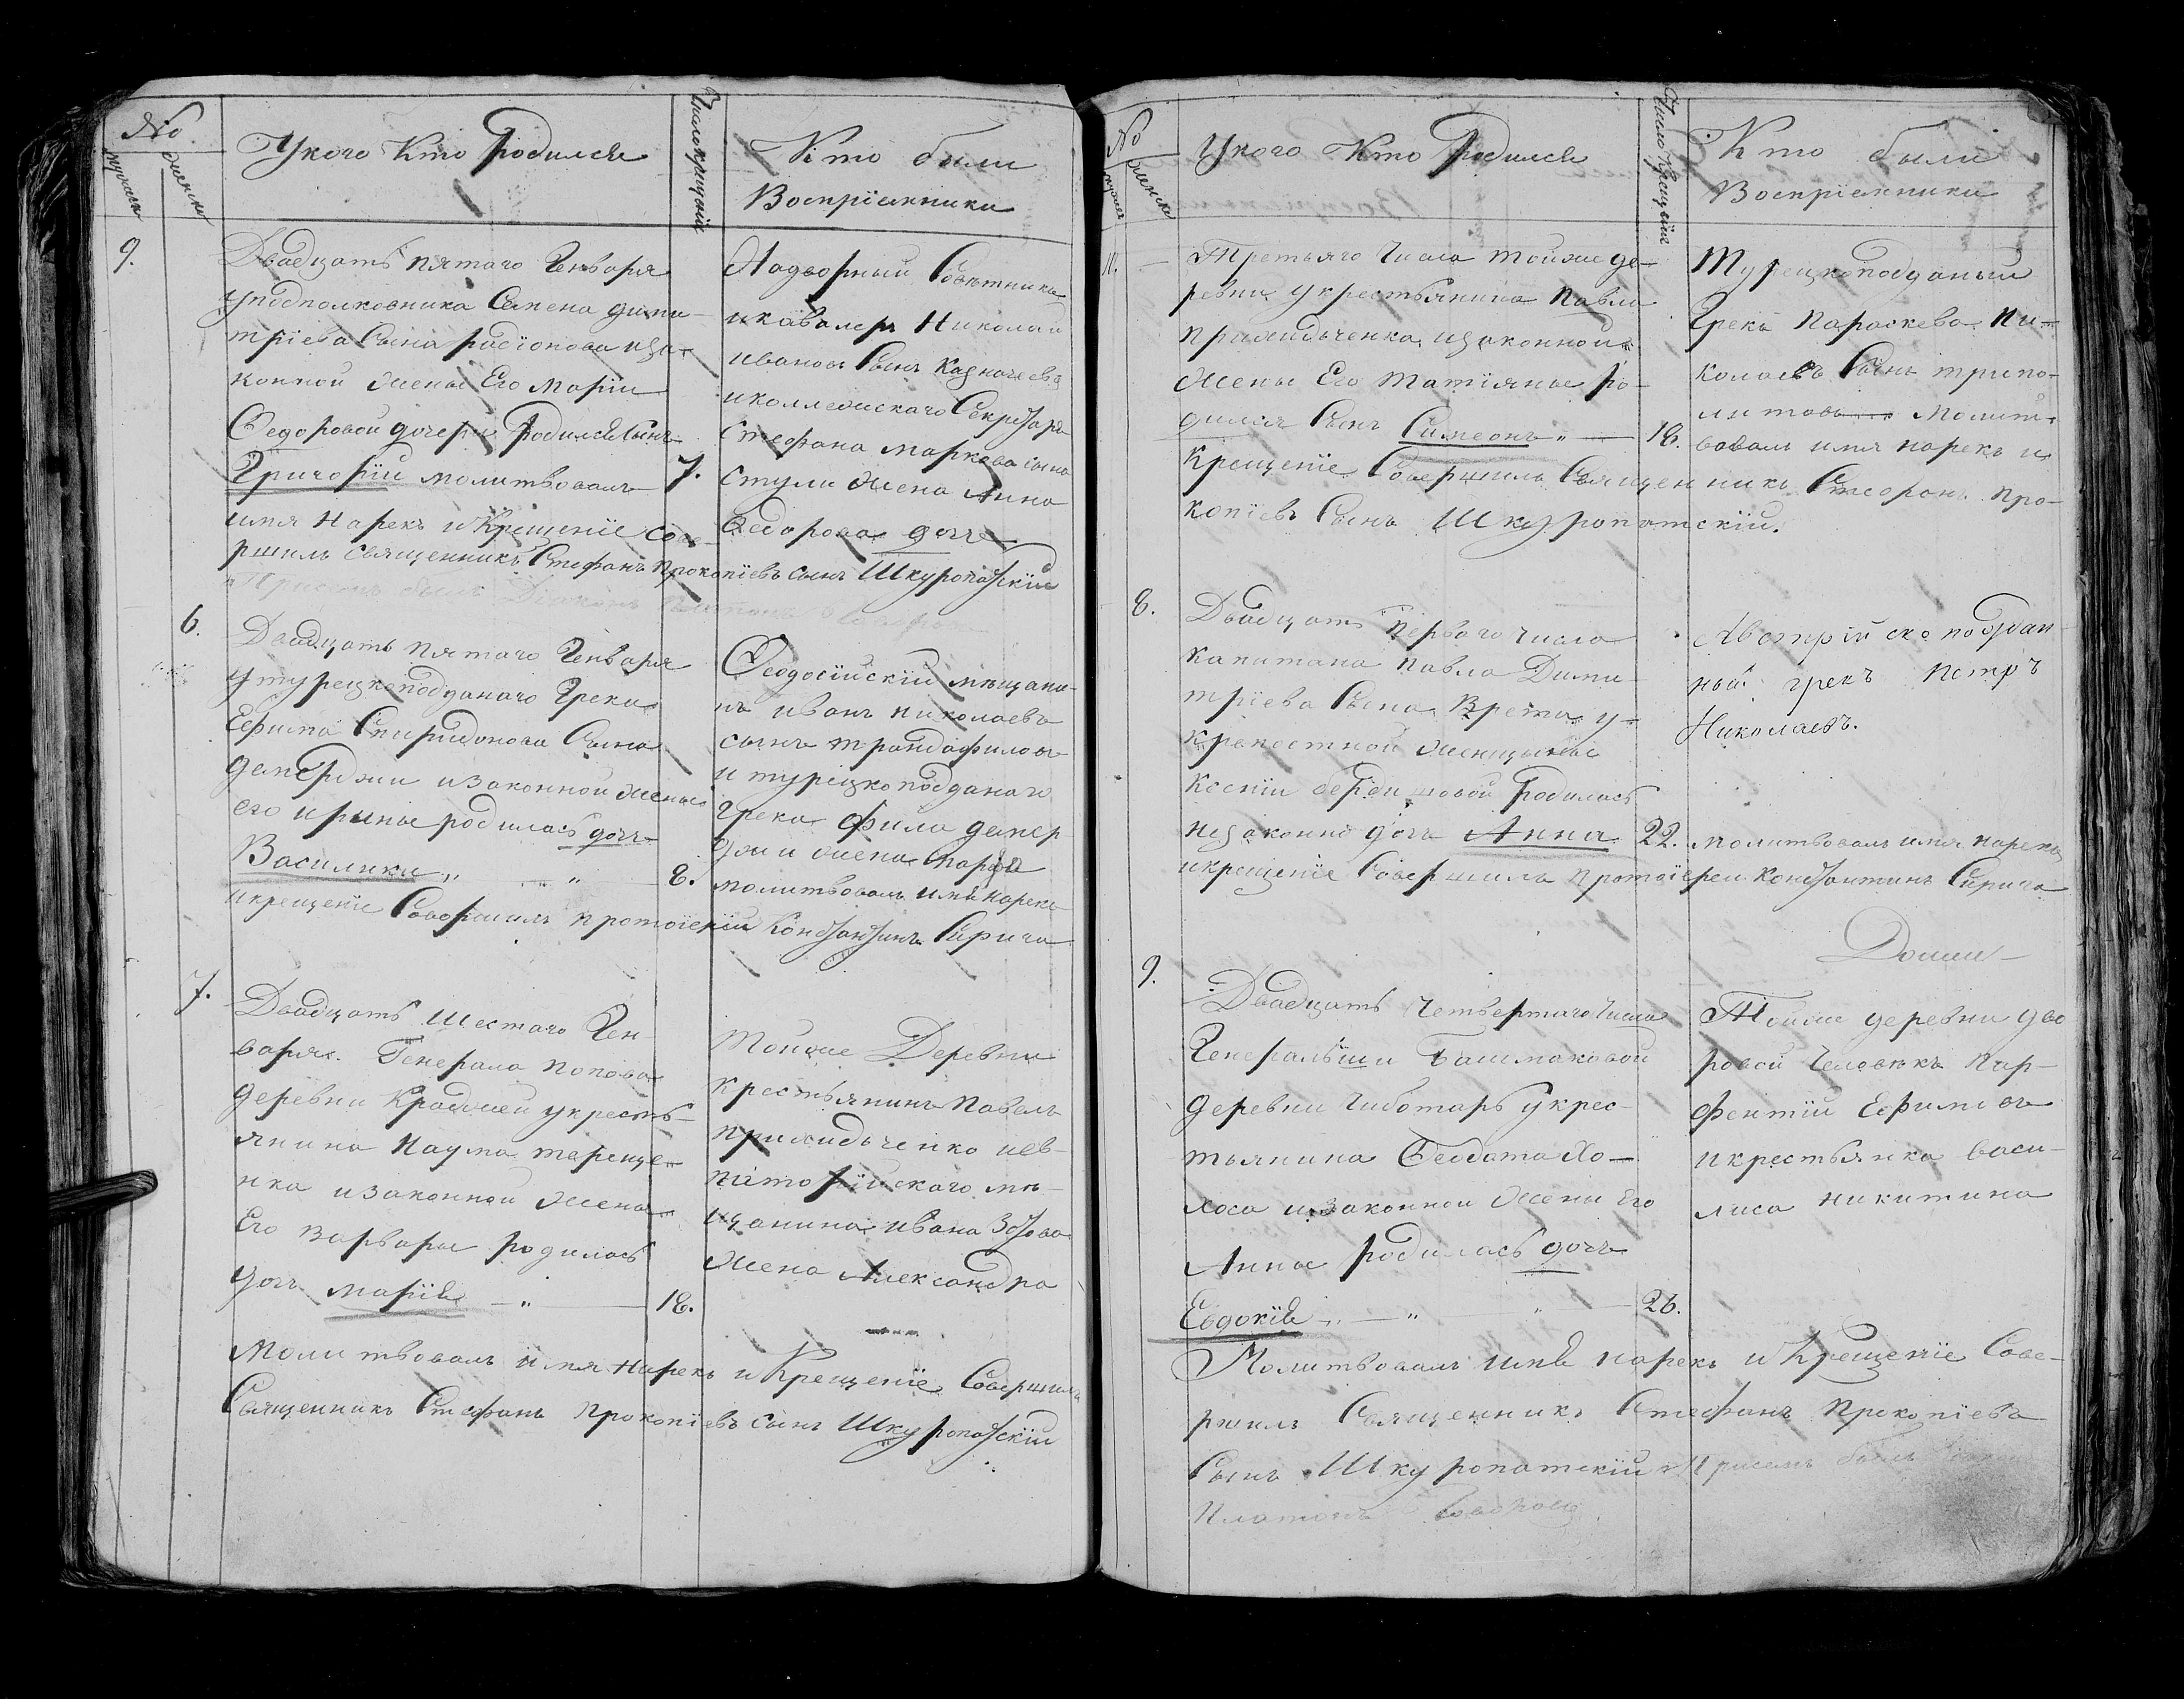 №
мужеска
женска
У кого Кто Родился
Число крещенiй
Кто были
Воспрiемники
9.
Двадцать пятаго Генваря
у подполковника Семена дими-
трiева Сына радiонова иза-
конной жены Его Марiи
Федоровой дочери Родился Сынъ
Григорiй молитвовалъ 7.
имя Нарекъ и Крещенiе сове-
ршилъ священникъ Стефанъ Прокопiевъ сынъ Шкуропатскiй
Присемъ былъ Дiаконъ Платонъ
Надворный Советникъ
икавалеръ Николай
ивановъ Сынъ Казначеевъ
иколлежскаго Секретаря
Стефана маркова сына
Стули жена Анна
Федорова дочь
6.
Двадцать пятаго Генваря
у турецкоподданаго Грека
Ефима Спиридонова Сына
демерджи изаконной жены
его ирины родилась дочь
Василики „ „ 8.
икрещенiе Совершилъ протоiерей Константинъ Сирига
Феодосiйскiй мещани-
нъ иванъ николаевъ
сынъ трандафиловъ
и турецкоподданаго
грека фила демер
джи жена марiя
молитвовалъ имя нарекъ
7.
Двадцать шестаго Ген-
варя. Генерала попова
деревни Крабжей укресть-
янина Наума тереще-
нка изаконной жены
Его Варвары родилась
дочь марiя „ 18.
Тойже Деревни
крестьянинъ павелъ
примидченко иев-
паторiйскаго мѣ-
щанина ивана Зотова
жена Александра
Молитвовалъ имя нарекъ и Крещенiе Совершилъ
Священникъ Стефанъ прокопiевъ сынъ Шкуропатскiй
№
мужеска
женска
У кого Кто Родился
Число Крещенiй
Кто были
Воспрiемники
11.
Третьяго Числа тойже де-
ревни укрестьянина павла
примидченка, изаконной
жены Его татiяны ро-
дился Сынъ Симеонъ „ 18.
Крещенiе Совершилъ Священникъ Стефанъ про-
копiевъ Сынъ Шкуропатскiй.
Турецкоподданый
Грекъ Параскева ни-
колаевъ Сынъ трипо-
литовъ Молит-
вовалъ имя нарекъ и
8.
Двадцать Перваго числа
капитана павла Дими-
трiева Сына Врета у-
крепостной женщины
Ксенiи родилась
незаконно дочь Анна 22. молитвовалъ имя нарекъ
икрещенiе Совершилъ протоiерей Константинъ Сирига
Австрiйскоподдан-
ный грекъ Петръ
Николаевъ.
9.
Двадцать Четвертаго Числа
Генеральши Башмаковой
деревни Чиботарь укрес-
тьянина Феодота Хо-
лоса изаконной жены Его
Анны родилась дочь
Евдокiя „ „ 26.
Тойже деревни дво
ровой Человѣкъ пар-
фентiй Ефимовъ
икрестьянка васи-
лиса никитина
Молитвовалъ имя нарекъ и Крещенiе Сове-
ршилъ Священникъ Стефанъ Прокопiевъ
Сынъ Шкуропатскiй Присемъ былъ
Платонъ